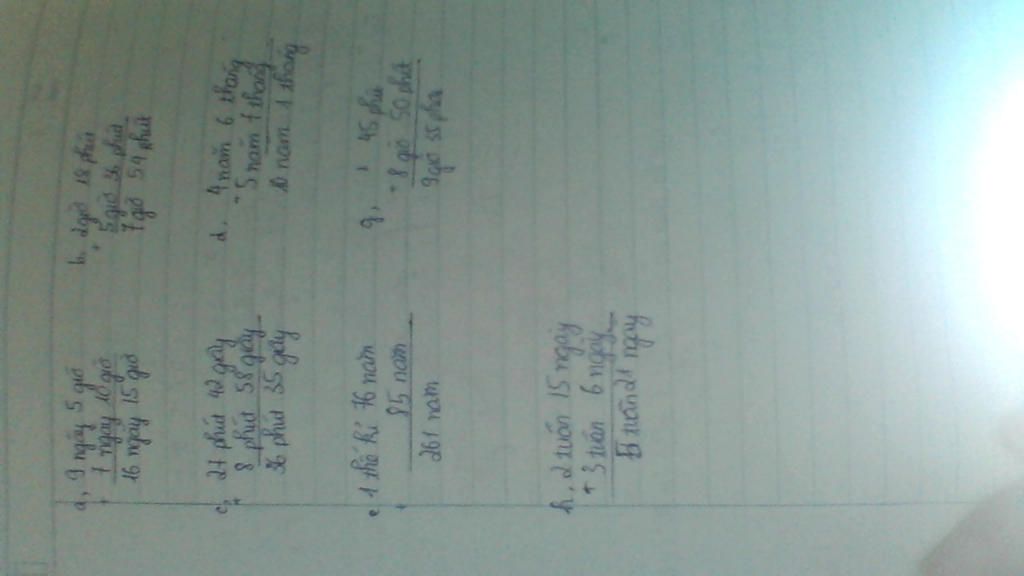 a, 9 ngày 5 giờ
+ 7 ngày 10 giờ
16 ngày 15 giờ
b. 2 giờ 18 phút
+ 5 giờ 36 phút
7 giờ 54 phút
c, 27 phút 42 giây
+ 8 phút 53 giây
36 phút 35 giây
d. 4 năm 6 tháng
5 năm 7 tháng
10 năm 1 tháng
e 1 thế kỉ 76 năm
+ 85 năm
261 năm
g, 45 phút
8 giờ 50 phút
9 giờ 35 phút
h, 2 tuần 15 ngày
+ 3 tuần 6 ngày
5 tuần 21 ngày